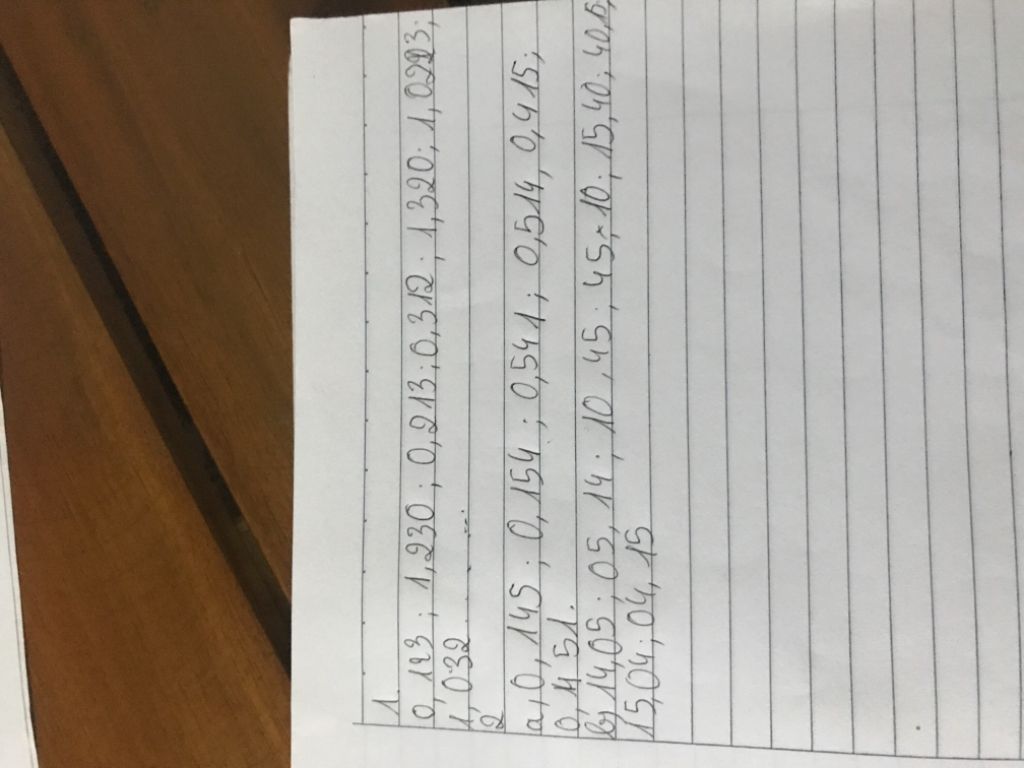 1.
0,123; 1,230; 0,213; 0,312; 1,320; 1,023;
1,032
2
a, 0,145; 0,154; 0,541; 0,514, 0,415;
0,451.
b, 14,05; 05,14; 10,45; 45,10; 15,40; 40,15,
15,04; 04,15